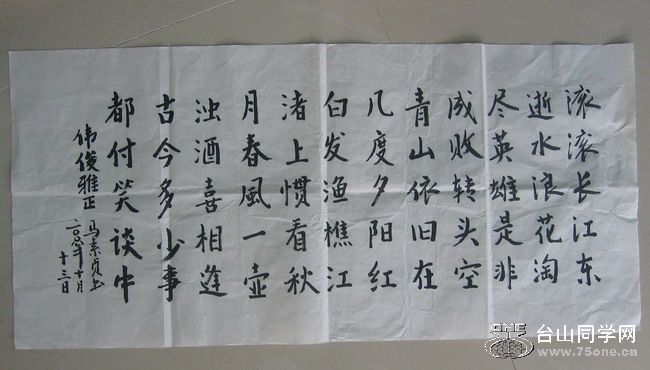 滚滚长江东
逝水浪花淘
尽英雄是非
成败转头空
青山依旧在
几度夕阳红
白发渔樵江
渚上惯看秋
月春風一壶
浊酒喜相逢
古今多少事
都付笑谈中
伟俊雅正
马素贞书
年十月
十三日
ONE
台山同学网
www.75one.cn